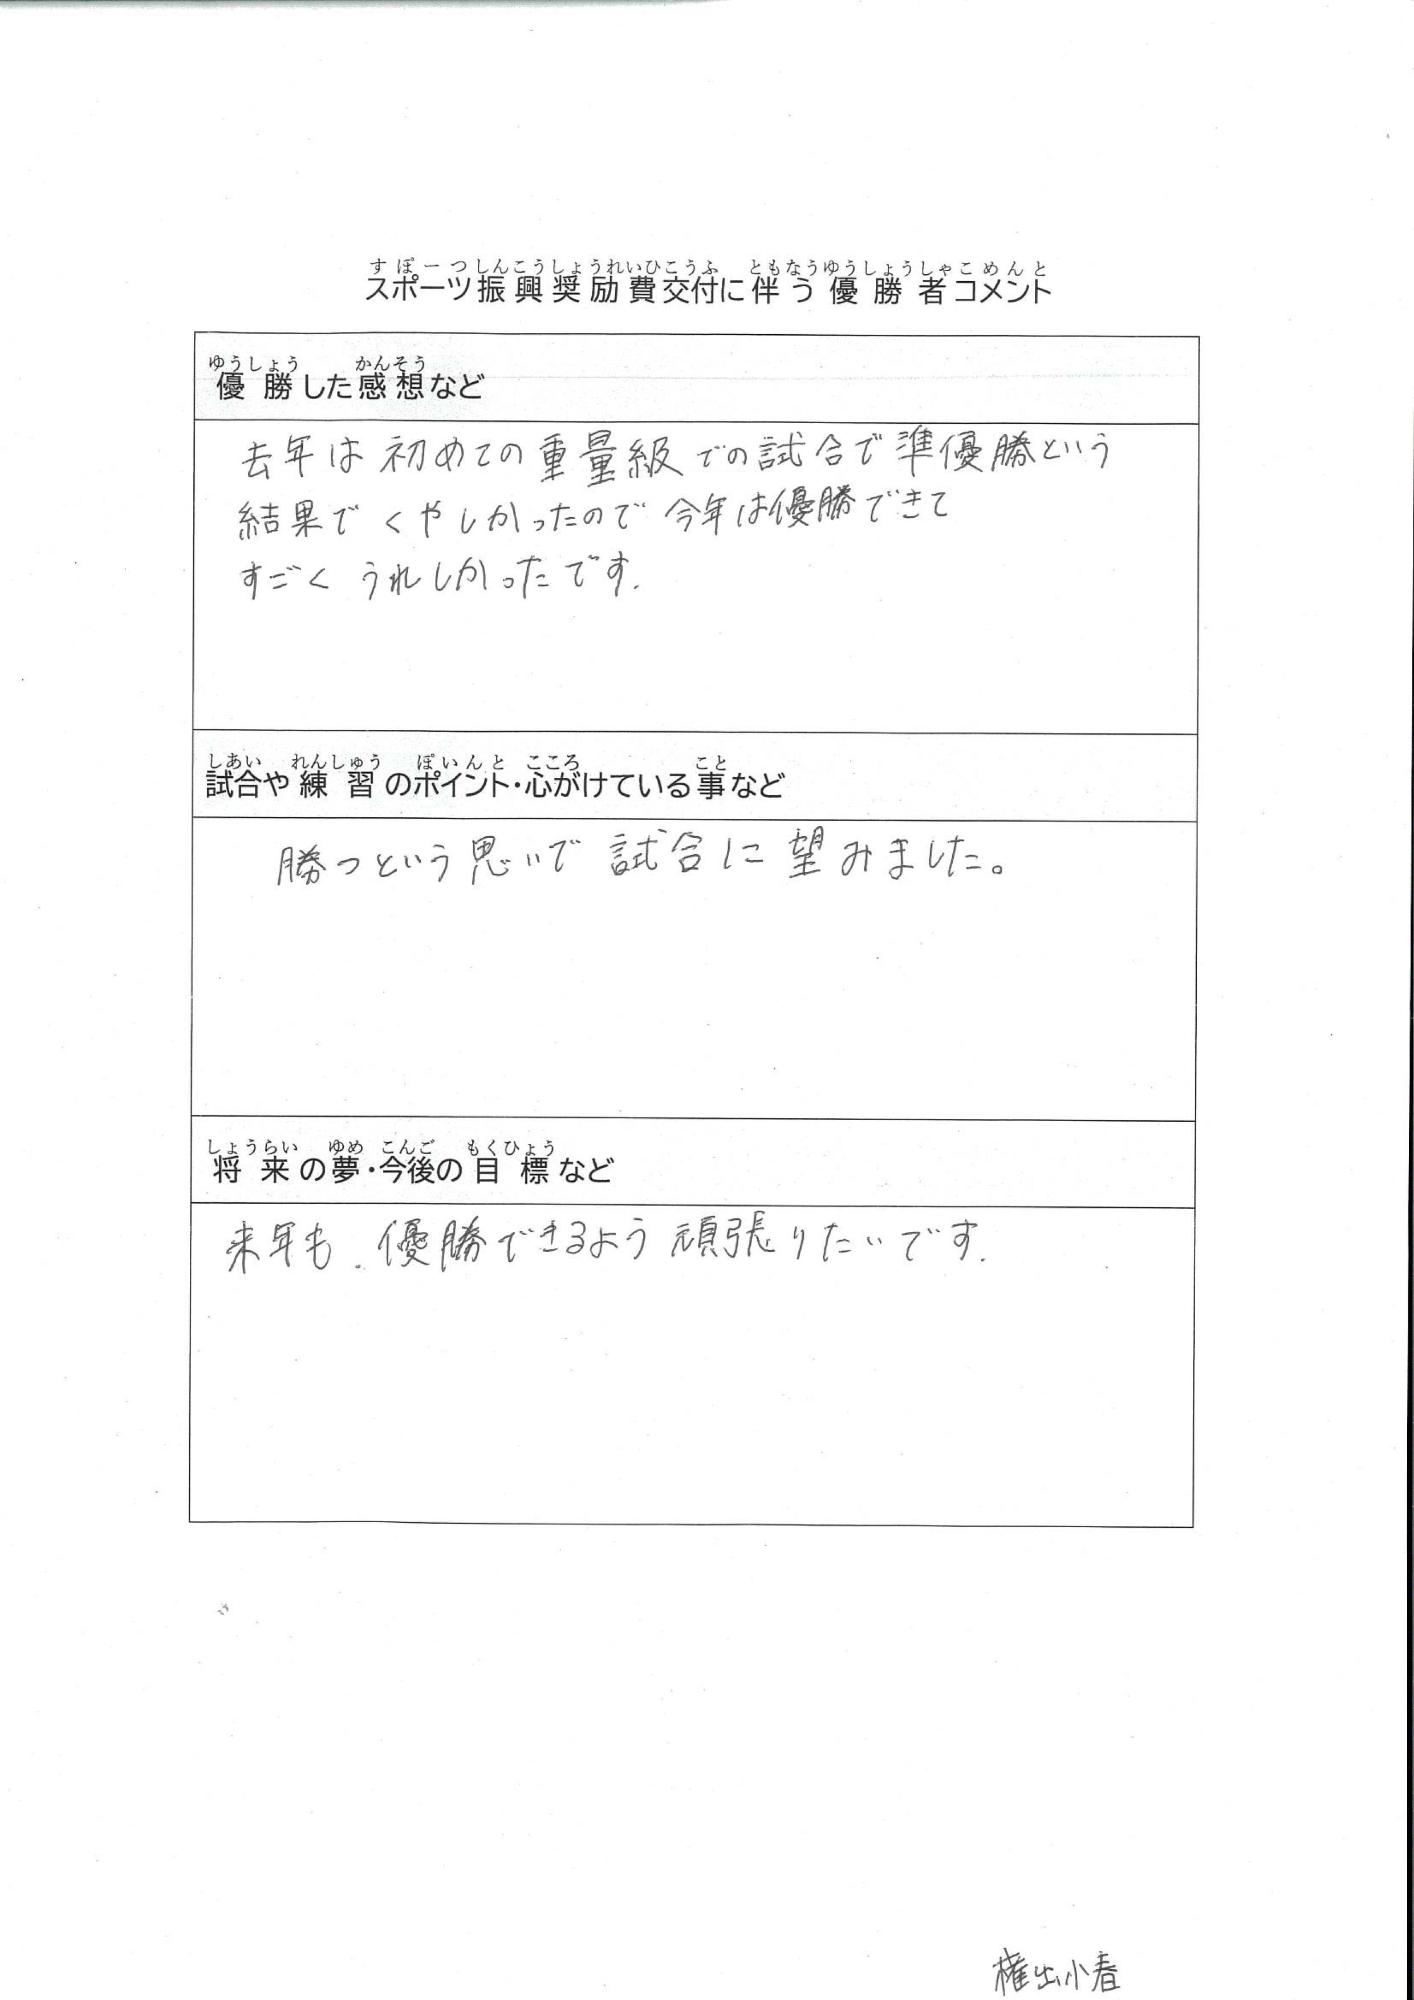 すぽーつしんこうしょうれいひこうふ ともなうゆうしょうしゃこめんと
スポーツ振興奨励費交付に伴う優勝者コメント
ゆうしょう かんそう
優勝した感想など
去年は初めての重量級での試合で準優勝という
結果でくやしかったので今年は優勝できて
すごくうれしかったです.
しあい れんしゅう ぽいんと こころ こと
試合や練習のポイント・心がけている事など
勝つという思いで試合に望みました。
しょうらい ゆめ こんご もくひょう
将来の夢・今後の目標など
来年も.優勝できるよう頑張りたいです.
権出小春